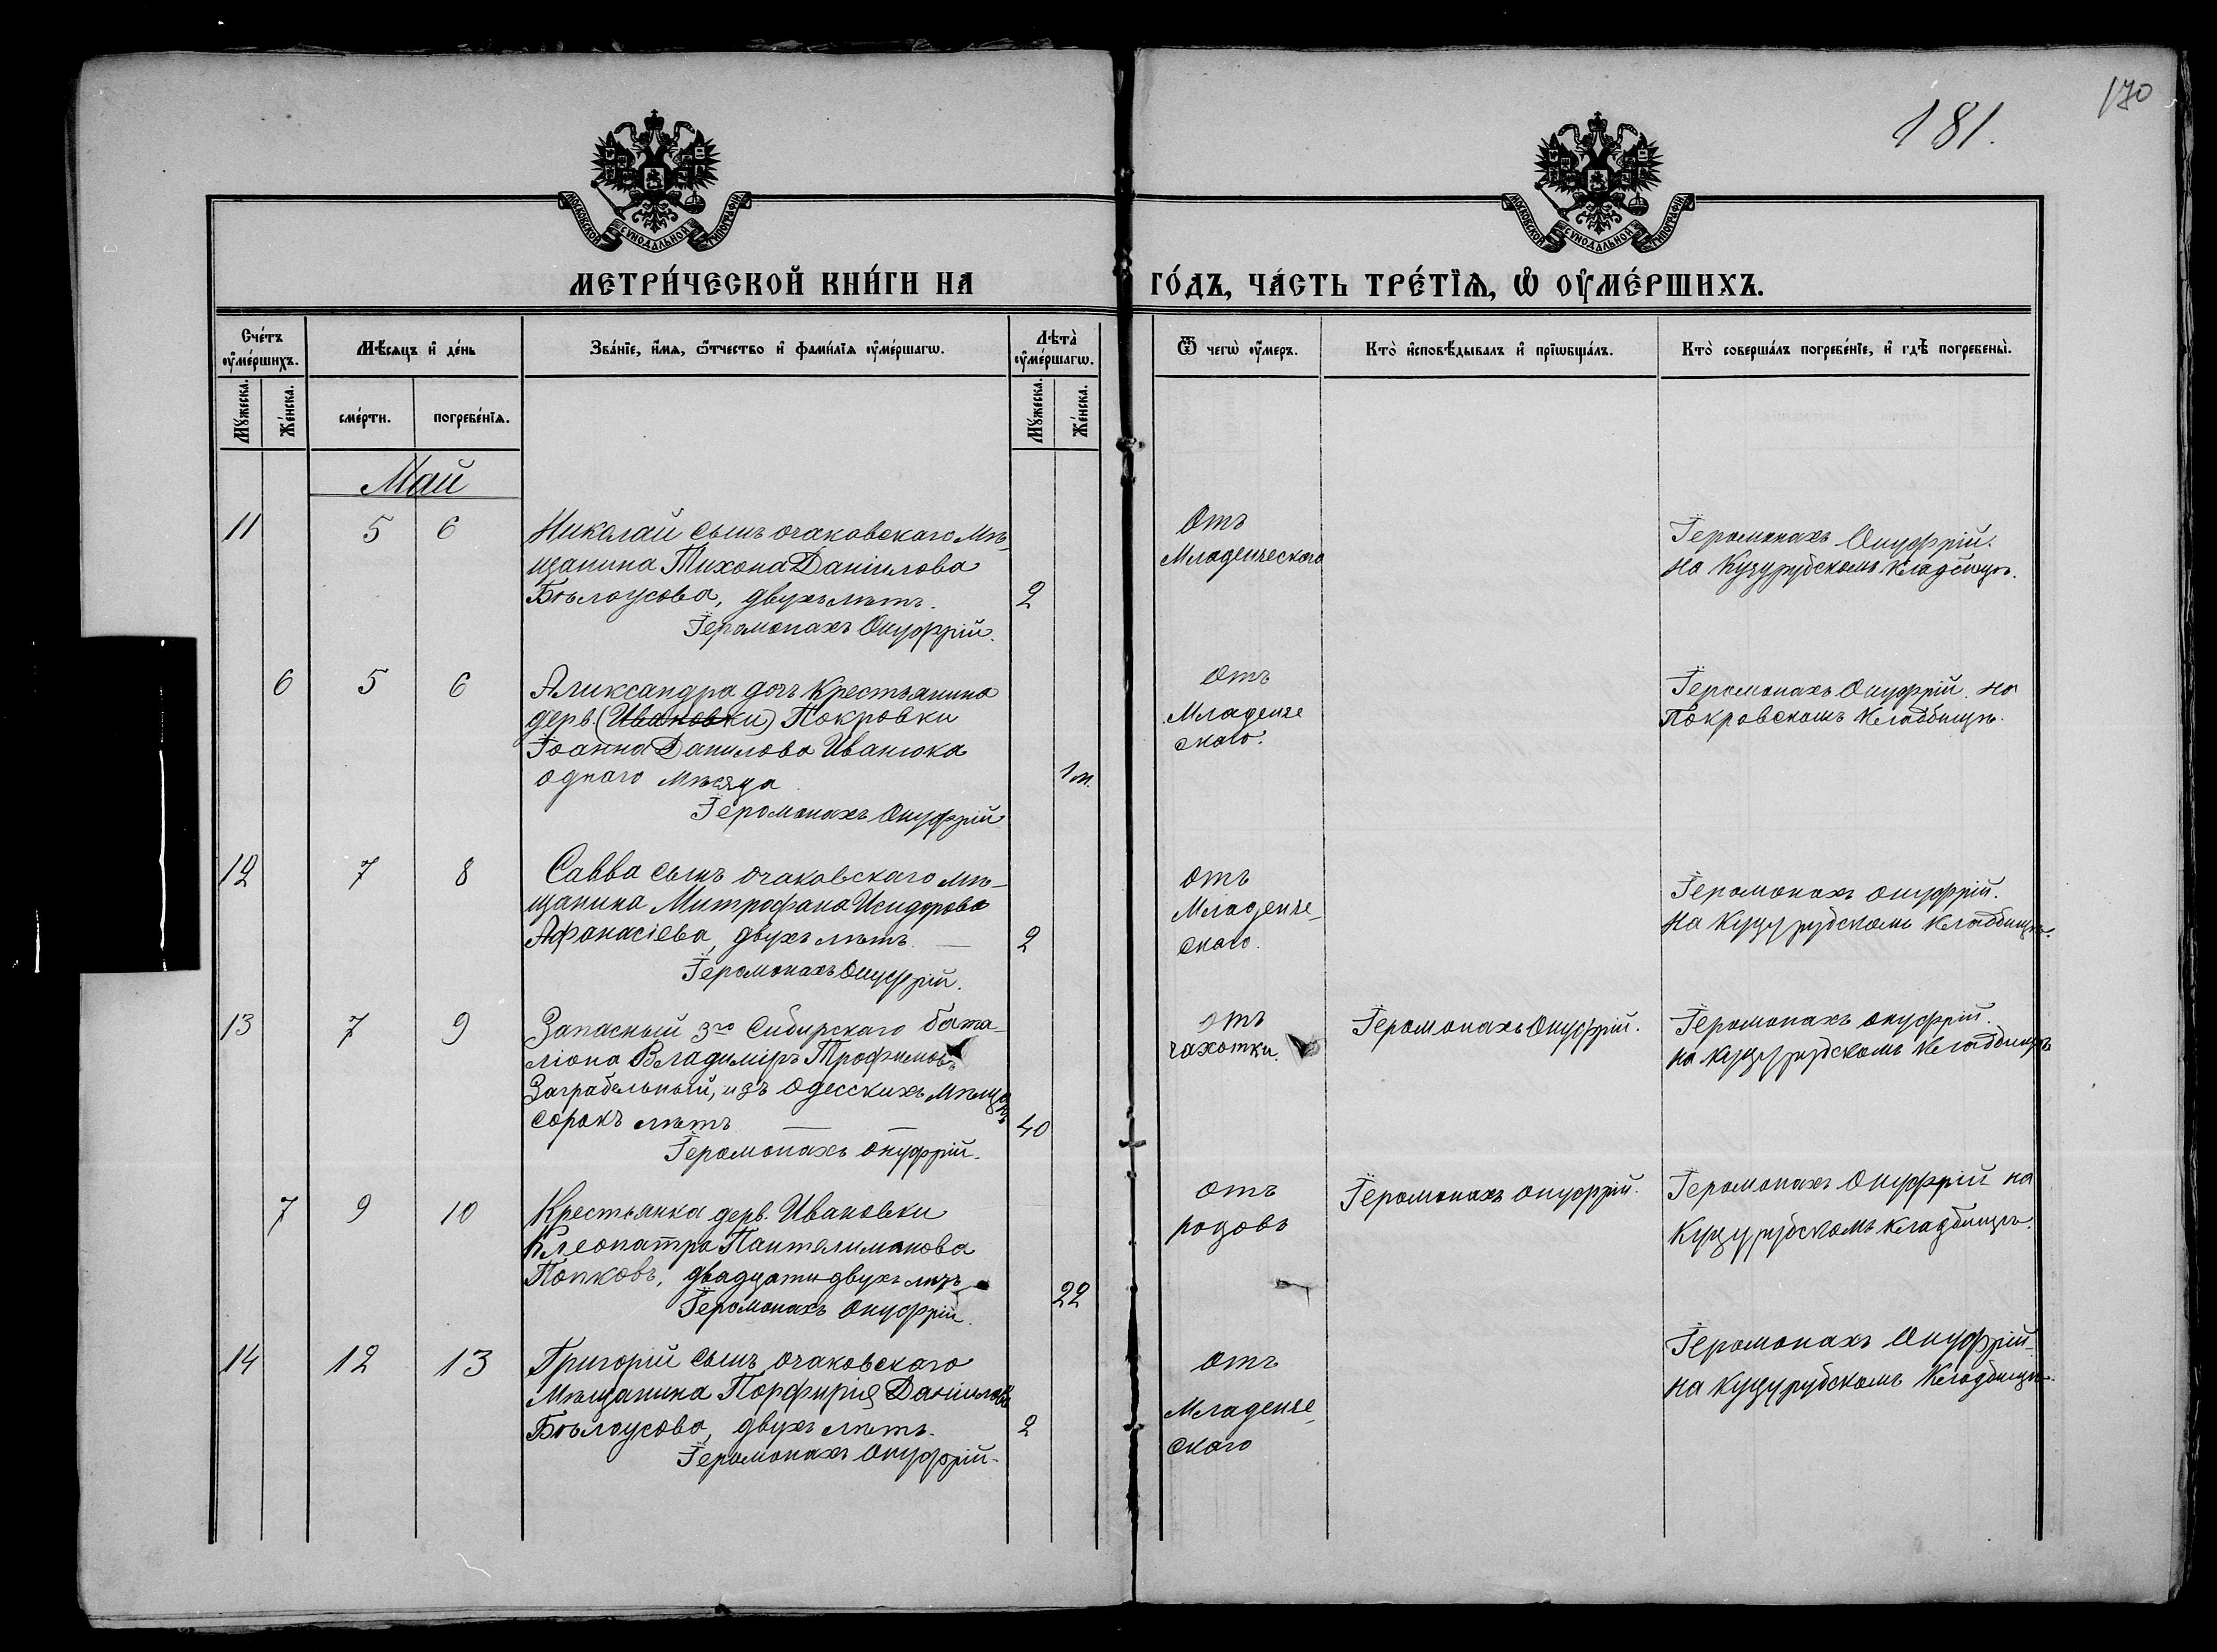 170
181.
МОСКОВСКОЙ СѴНОДАЛЬНОЙ ТИПОГРАФІИ
МОСКОВСКОЙ СѴНОДАЛЬНОЙ ТИПОГРАФІИ
МЕТРИ́ЧЕСКОЙ КНИ́ГИ НА ГО́ДЪ, ЧА́СТЬ ТРЕ́ТІѦ, Ѡ҆ ОУ҆МЕ́РШИХЪ.
Сче́тъ оу҆ме́ршихъ.
Мѣ́сѧцъ и҆ де́нь
Зва́нїе, и҆́мѧ, ѻ҆́тчество и҆ фами́лїѧ оу҆ме́ршагѡ.
Лѣта̀ оу҆ме́ршагѡ.
Ѿ чегѡ̀ оу҆́меръ.
Кто̀ и҆сповѣ́дывалъ и҆ прїѡбща́лъ.
Кто̀ соверша́лъ погребе́нїе, и҆ гдѣ̀ погребены̀.
Мꙋ́жеска.
Же́нска.
сме́рти.
погребе́нїѧ.
Мꙋ́жеска.
Же́нска.
Май
11 5 6 Николай сынъ очаковскаго мѣ-
щанина Тихона Даніилова
Бѣлоусова, двухъ лѣтъ. 2
Іеромонахъ Онуфрій.
Отъ
Младенческаго
Іеромонахъ Онуфрій.
на Куцурубскомъ кладбищѣ.
6 5 6 Александра дочь крестьянина
дерв. (Ивановки) Покровки
Іоанна Данилова Иванюка
одного мѣсяца 1 м.
Іеромонахъ Онуфрій
Отъ
Младенче
скаго.
Іеромонахъ Онуфрій. на
Покровскомъ кладбищѣ.
12 7 8 Савва сынъ очаковскаго мѣ-
щанина Митрофана Исидорова
Афанасіева, двухъ лѣтъ. — 2
Іеромонахъ Онуфрій.
отъ
Младенче-
скаго.
Іеромонахъ Онуфрій.
на Куцурубскомъ кладбищѣ.
13 7 9 Запасный 3го Сибирскаго бата-
ліона Владиміръ Трофимовъ
Заграбельный, изъ Одесскихъ мѣщанъ
сорокъ лѣтъ — — 40
Іеромонахъ Онуфрій.
отъ
чахотки.
Іеромонахъ Онуфрій.
Іеромонахъ Онуфрій.
на Куцурубскомъ кладбищѣ
7 9 10 Крестьянка дерв. Ивановки
Клеопатра Пантелимонова
Попковъ, двадцати двухъ лѣтъ 22
Іеромонахъ Онуфрій.
отъ
родовъ
Іеромонахъ Онуфрій.
Іеромонахъ Онуфрій на
Куцурубскомъ кладбищѣ.
14 12 13 Григорій сынъ очаковскаго
мѣщанина Порфирія Даніилова
Бѣлоусова, двухъ лѣтъ. 2
Іеромонахъ Онуфрій.
отъ
Младенче-
скаго
Іеромонахъ Онуфрій
на Куцурубскомъ кладбищѣ.